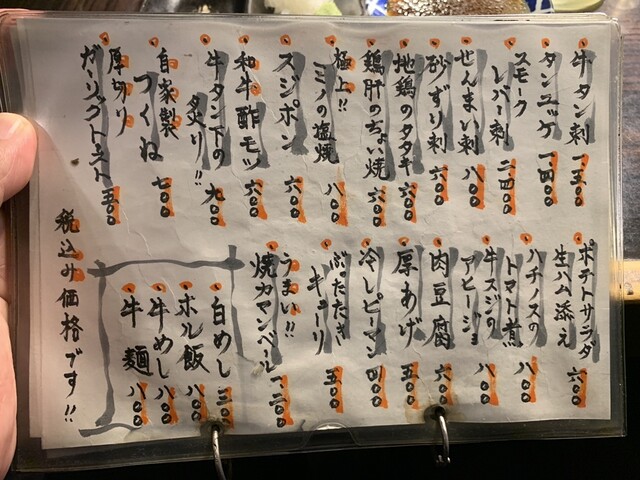 牛タン刺 一五〇〇
タンユッケ 一四〇〇
スモーク
レバー刺 二四〇〇
せんまい刺 八〇〇
砂ずり刺 六〇〇
地鶏のタタキ 六〇〇
鶏肝のちょい焼 六〇〇
極上!!
ミノの塩焼 八〇〇
スジポン 六〇〇
和牛酢モツ 六〇〇
牛タン下の
炙り!! 九〇〇
自家製
つくね 七〇〇
厚切り
ガーリックトースト 五〇〇
ポテトサラダ
生ハム添え 六〇〇
ハチノスの
トマト煮 八〇〇
牛スジの
アヒージョ 八〇〇
肉豆腐 六〇〇
厚あげ 五〇〇
冷しピーマン 四〇〇
ぶったたき
キューリ 五〇〇
うまい!!
焼カマンベール 一二〇〇
白めし 二〇〇
ホル飯 八〇〇
牛めし 八〇〇
牛麺 八〇〇
税込み価格です!!